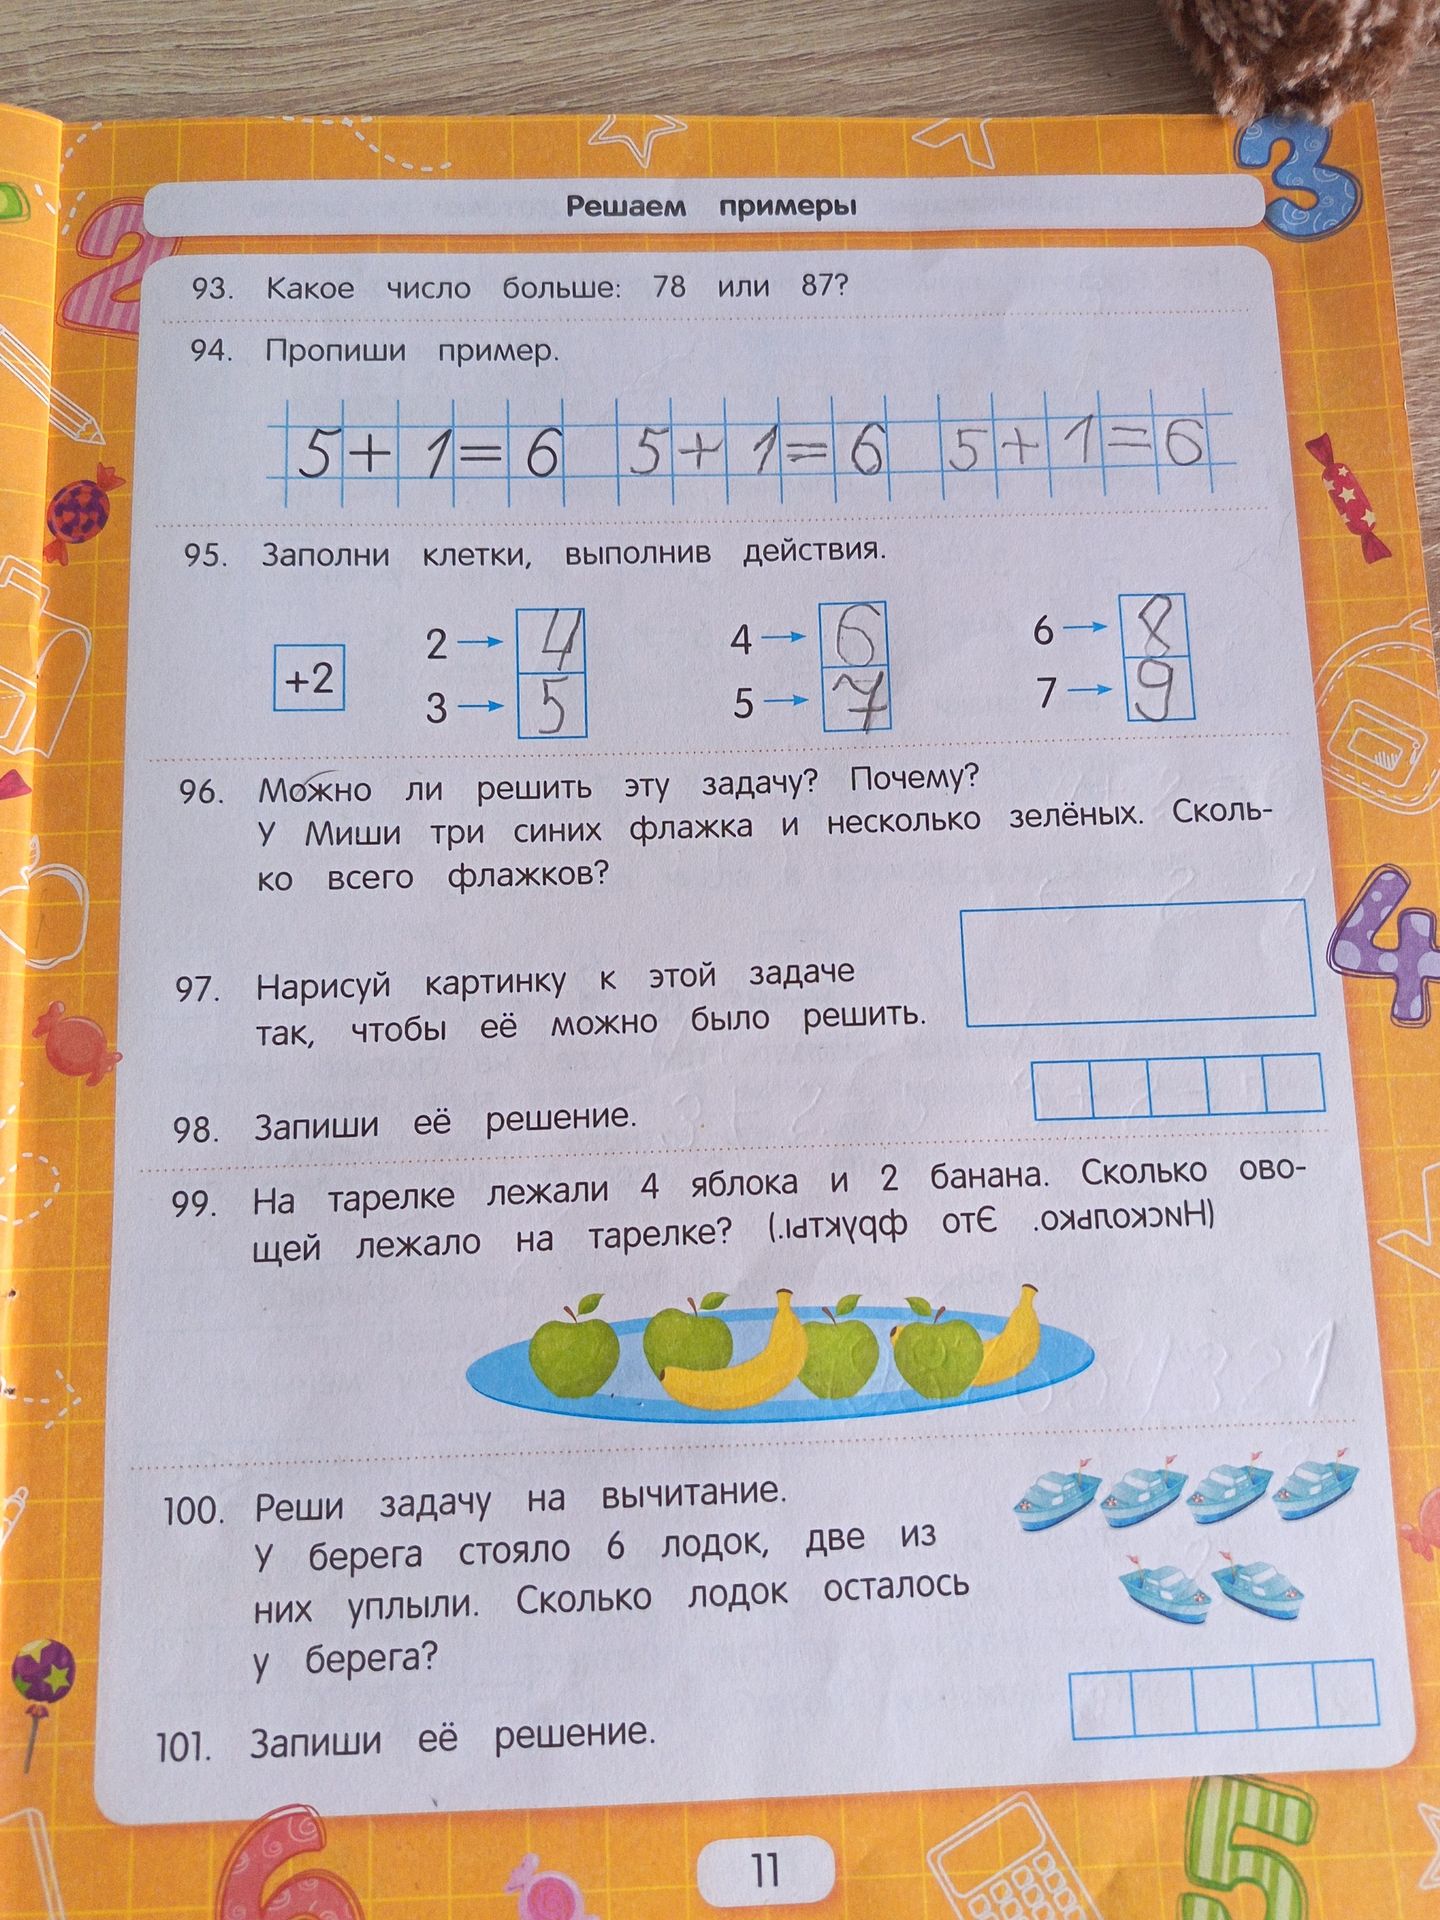 Решаем примеры
93. Какое число больше: 78 или 87?
94. Пропиши пример.
5+1=6 5+1=6 5+1=6
95. Заполни клетки, выполнив действия.
2 → 4 4 → 6 6 → 8
+2
3 → 5 5 → 7 7 → 9
96. Можно ли решить эту задачу? Почему?
У Миши три синих флажка и несколько зелёных. Сколь-
ко всего флажков?
97. Нарисуй картинку к этой задаче
так, чтобы её можно было решить.
98. Запиши её решение.
99. На тарелке лежали 4 яблока и 2 банана. Сколько ово-
щей лежало на тарелке? (Нисколько. Это фрукты.)
100. Реши задачу на вычитание.
У берега стояло 6 лодок, две из
них уплыли. Сколько лодок осталось
у берега?
101. Запиши её решение.
11